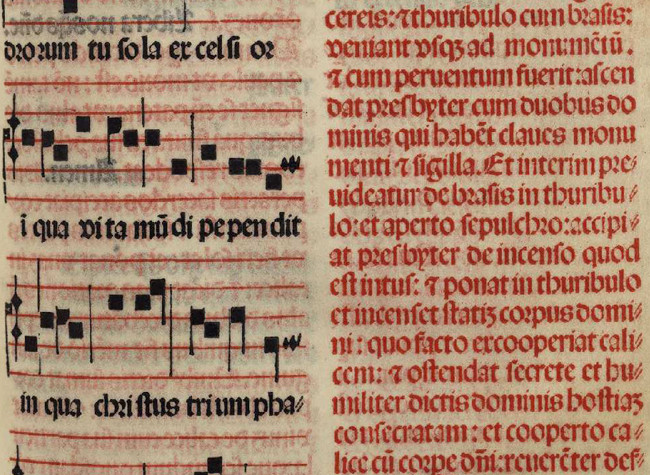 drorum tu sola excelsi or
ī qua vita mūdi pependit
in qua christus triumpha⸗
cereis: ⁊ thuribulo cum brasis:
veniant vsqꝫ ad monumētū.
⁊ cum peruentum fuerit: ascen
dat presbyter cum duobus do
minis qui habēt claues monu
menti ⁊ sigilla. Et interim pre⸗
uideatur de brasis in thuribu⸗
lo: et aperto sepulchro: accipi⸗
at presbyter de incenso quod
est intus: ⁊ ponat in thuribulo
et incenset statiꝫ corpus domi⸗
ni: quo facto excooperiat cali⸗
cem: ⁊ ostendat secrete et hu⸗
militer dictis dominis hostiaꝫ
consecratam: et cooperto ca⸗
lice cū corpe dn̄i: reuerēter def⸗